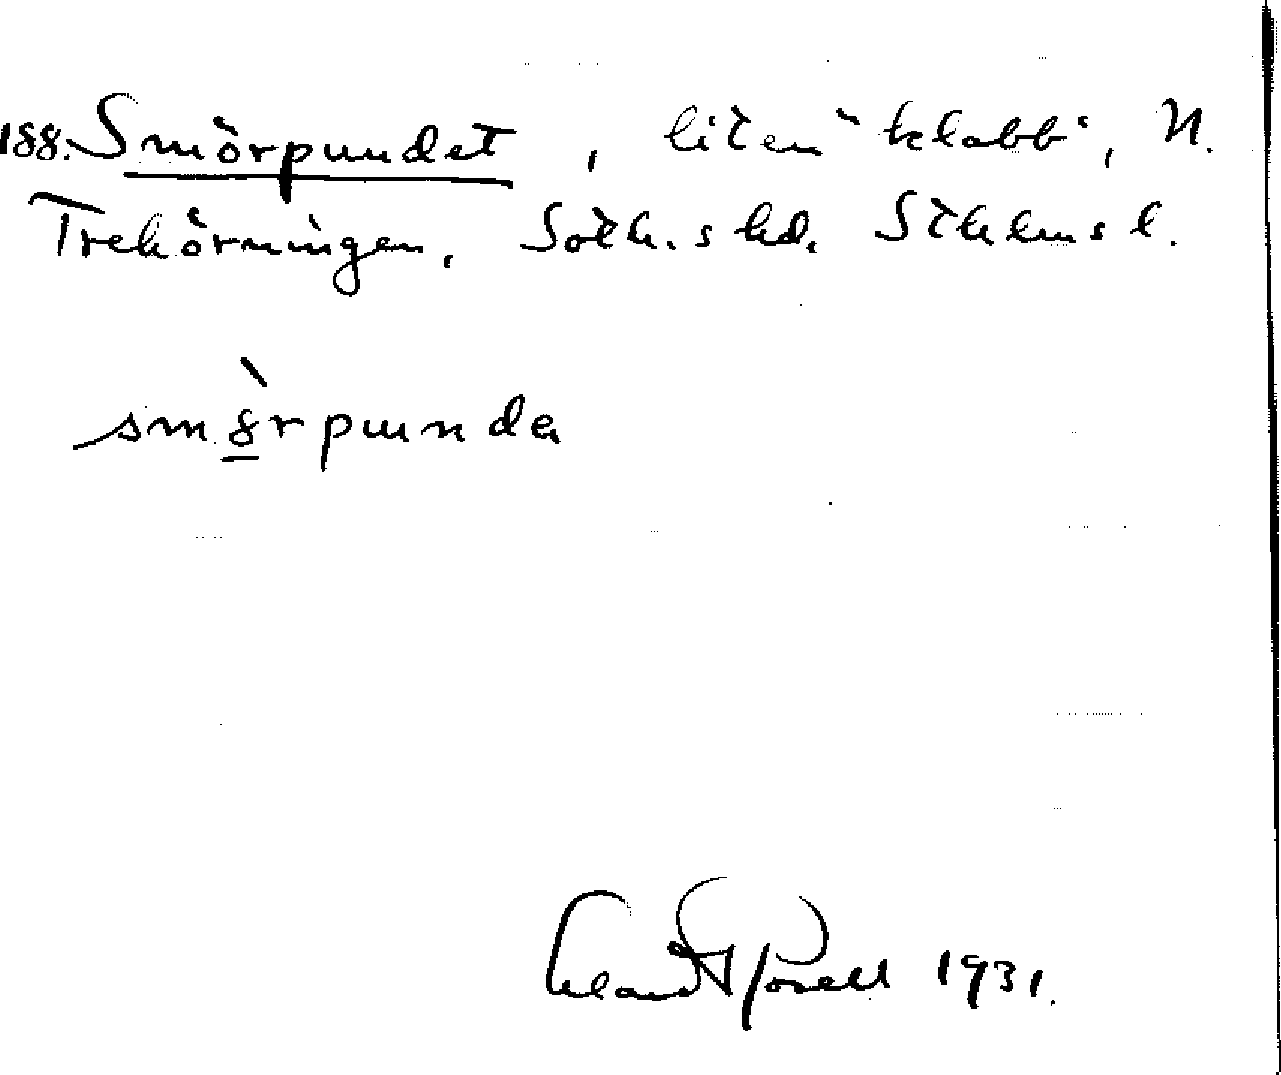 188. Smörpundet, liten "klabb", N.
Trehörningen. Soth. skd. Sthlms l.
smörpunda
1931.